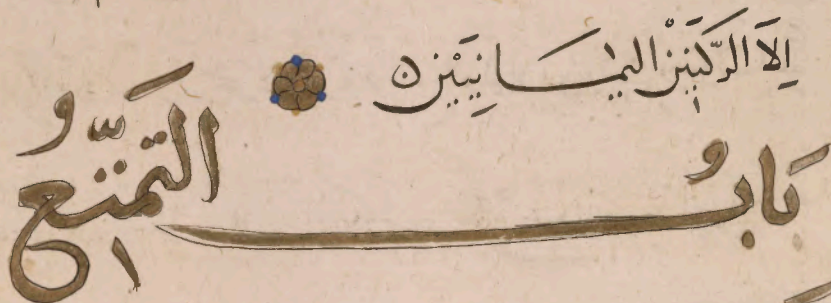 إِلَّا الرُّكْنَيْنِ الْيَمَانِيَيْنِ
بَابُ التَّمَتُّعِ